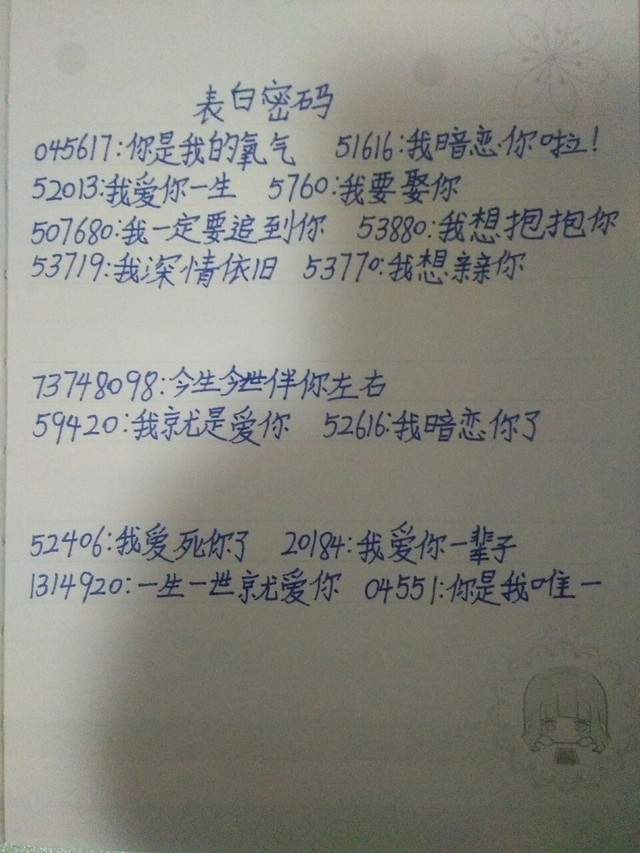 表白密码
045617:你是我的氧气 51616:我暗恋你啦!
52013:我爱你一生 5760:我要娶你
507680:我一定要追到你 53880:我想抱抱你
53719:我深情依旧 53770:我想亲亲你
73748098:今生今世伴你左右
59420:我就是爱你 52616:我暗恋你了
52406:我爱死你了 20184:我爱你一辈子
1314920:一生一世就爱你 04551:你是我唯一